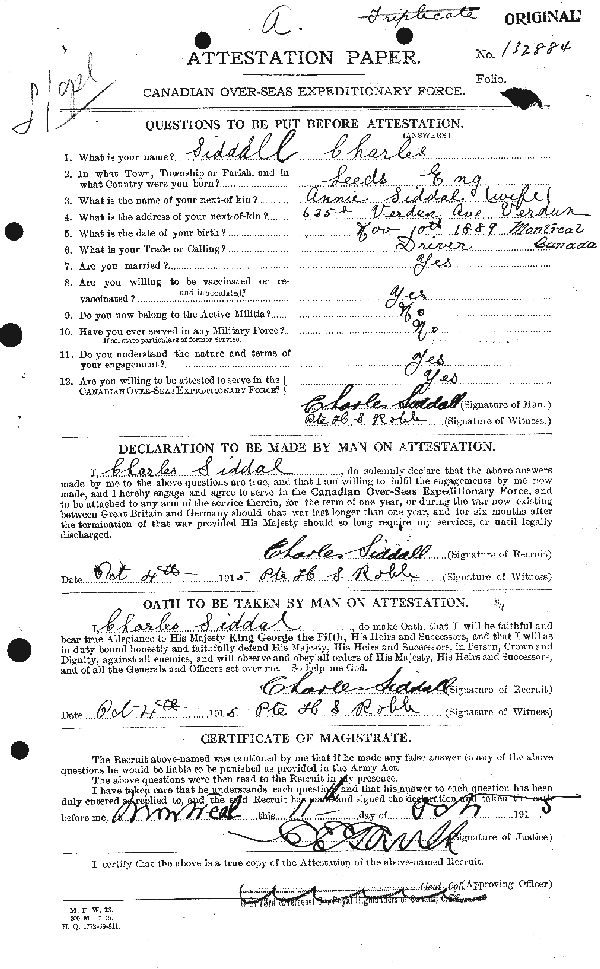 A. Triplicate ORIGINAL
ATTESTATION PAPER.
No. 132884
Folio.
CANADIAN OVER-SEAS EXPEDITIONARY FORCE.
QUESTIONS TO BE PUT BEFORE ATTESTATION.
(ANSWERS)
1. What is your name? Siddall Charles
2. In what Town, Township or Parish, and in
what Country were you born? Leeds Eng
3. What is the name of your next-of-kin? Annie Siddal (wife)
4. What is the address of your next-of-kin? 625a Verdun Ave Verdun
5. What is the date of your birth? Nov 10th 1889 Montreal
6. What is your Trade or Calling? Driver Canada
7. Are you married? Yes
8. Are you willing to be vaccinated or re-
vaccinated and inoculated? Yes
9. Do you now belong to the Active Militia? No
10. Have you ever served in any Military Force? No
If so, state particulars of former Service.
11. Do you understand the nature and terms of
your engagement? Yes
12. Are you willing to be attested to serve in the
CANADIAN OVER-SEAS EXPEDITIONARY FORCE? Yes
Charles Siddall (Signature of Man.)
Pte H S Roble (Signature of Witness.)
DECLARATION TO BE MADE BY MAN ON ATTESTATION.
I, Charles Siddal, do solemnly declare that the above answers
made by me to the above questions are true, and that I am willing to fulfil the engagements by me now
made, and I hereby engage and agree to serve in the Canadian Over-Seas Expeditionary Force, and
to be attached to any arm of the service therein, for the term of one year, or during the war now existing
between Great Britain and Germany should that war last longer than one year, and for six months after
the termination of that war provided His Majesty should so long require my services, or until legally
discharged.
Charles Siddall (Signature of Recruit)
Date Oct 4th 1915 Pte H S Roble (Signature of Witness)
OATH TO BE TAKEN BY MAN ON ATTESTATION.
I, Charles Siddal, do make Oath, that I will be faithful and
bear true Allegiance to His Majesty King George the Fifth, His Heirs and Successors, and that I will as
in duty bound honestly and faithfully defend His Majesty, His Heirs and Successors, in Person, Crown and
Dignity, against all enemies, and will observe and obey all orders of His Majesty, His Heirs and Successors,
and of all the Generals and Officers set over me. So help me God.
Charles Siddall (Signature of Recruit)
Date Oct 4th 1915 Pte H S Roble (Signature of Witness)
CERTIFICATE OF MAGISTRATE.
The Recruit above-named was cautioned by me that if he made any false answer to any of the above
questions he would be liable to be punished as provided in the Army Act.
The above questions were then read to the Recruit in my presence.
I have taken care that he understands each question and that his answer to each question has been
duly entered as replied to, and the said Recruit has made and signed the declaration and taken the oath
before me, Montreal this 11th day of Oct 1915
(Signature of Justice)
I certify that the above is a true copy of the Attestation of the above-named Recruit.
Lieut. Col. (Approving Officer)
M. F. W. 23.
H. Q. 1772-39-841.